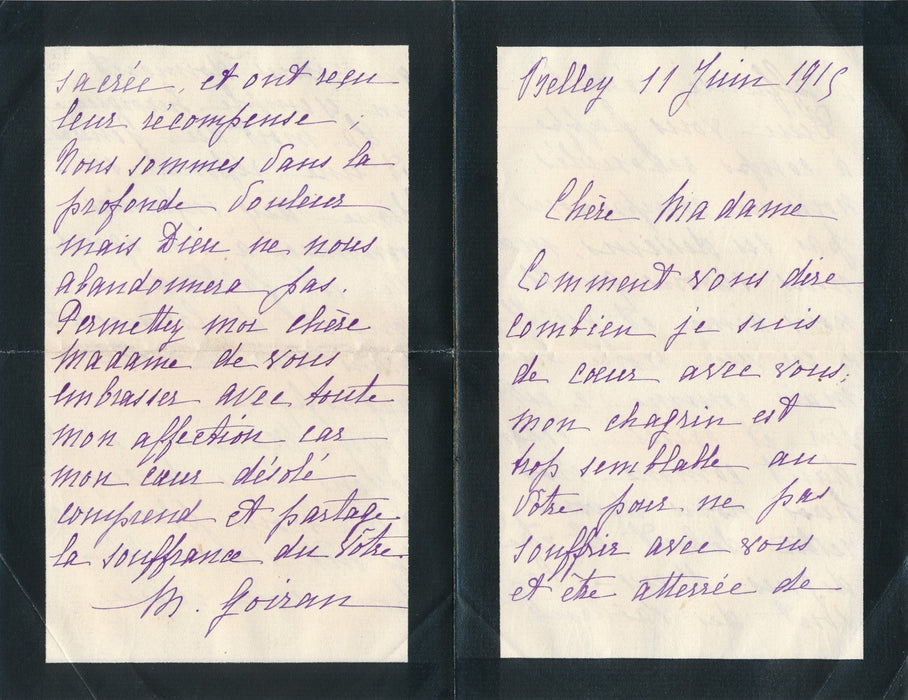 Belley 11 Juin 1915
Chère Madame
Comment vous dire
combien je suis
de cœur avec vous;
mon chagrin est
trop semblable au
Vôtre pour ne pas
souffrir avec vous
et être atterrée de
sacrée, et ont reçu
leur récompense.
Nous sommes dans la
profonde douleur
mais Dieu ne nous
abandonnera pas.
Permettez moi chère
Madame de vous
embrasser avec toute
mon affection car
mon cœur désolé
comprend et partage
la souffrance du Vôtre.
M. Goiran